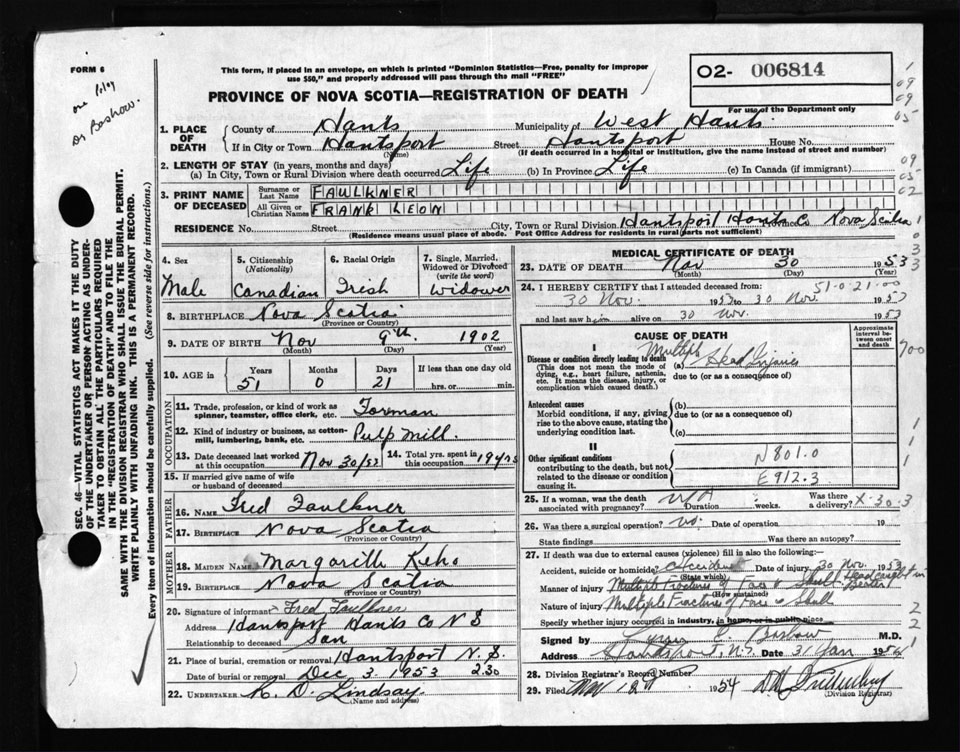 FORM 6
one policy
Dr Bashow.
This form, if placed in an envelope, on which is printed "Dominion Statistics—Free, penalty for improper
use $50," and properly addressed will pass through the mail "FREE"
O2- 006814
For use of the Department only
PROVINCE OF NOVA SCOTIA—REGISTRATION OF DEATH
1. PLACE OF DEATH
County of Hants Municipality of West Hants.
If in City or Town Hantsport (Name) Street Hantsport House No.
(If death occurred in a hospital or institution, give the name instead of street and number)
2. LENGTH OF STAY (in years, months and days)
(a) In City, Town or Rural Division where death occurred Life (b) In Province Life (c) In Canada (if immigrant)
3. PRINT NAME OF DECEASED
Surname or Last Name FAULKNER
All Given or Christian Names FRANK LEON
RESIDENCE No. Street City, Town or Rural Division Hantsport Hants Co Nova Scotia
(Residence means usual place of abode. Post Office Address for residents in rural parts not sufficient)
4. Sex Male
5. Citizenship (Nationality) Canadian
6. Racial Origin Irish
7. Single, Married, Widowed or Divorced (write the word) Widower
8. BIRTHPLACE Nova Scotia
(Province or Country)
9. DATE OF BIRTH Nov 9th 1902
(Month) (Day) (Year)
10. AGE in Years 51 Months 0 Days 21 If less than one day old hrs. or min.
OCCUPATION
11. Trade, profession, or kind of work as spinner, teamster, office clerk, etc. Forman
12. Kind of industry or business, as cotton-mill, lumbering, bank, etc. Pulp Mill.
13. Date deceased last worked at this occupation Nov 30/53
14. Total yrs. spent in this occupation 19 yrs
15. If married give name of wife or husband of deceased
FATHER
16. Name Fred Faulkner
17. Birthplace Nova Scotia
(Province or Country)
MOTHER
18. Maiden Name Margarille Keho
19. Birthplace Nova Scotia
(Province or Country)
20. Signature of informant Fred Faulkner
Address Hantsport Hants Co N S
Relationship to deceased Son
21. Place of burial, cremation or removal Hantsport N.S.
Date of burial or removal Dec 3 1953 2.30
22. Undertaker K. D. Lindsay
(Name and address)
MEDICAL CERTIFICATE OF DEATH
23. DATE OF DEATH Nov 30 1953
(Month) (Day) (Year)
24. I HEREBY CERTIFY that I attended deceased from: 51-0-21-00
30 Nov. 1953 to 30 Nov. 1953
and last saw him alive on 30 Nov. 1953
CAUSE OF DEATH
Approximate interval between onset and death
I
Disease or condition directly leading to death (a) Multiple Head Injuries
(This does not mean the mode of dying, e.g., heart failure, asthenia, etc. It means the disease, injury, or complication which caused death.)
due to (or as a consequence of)
Antecedent causes (b)
Morbid conditions, if any, giving rise to the above cause, stating the underlying condition last.
due to (or as a consequence of)
(c)
II
Other significant conditions
contributing to the death, but not related to the disease or condition causing it.
N801.0
E912.3
25. If a woman, was the death associated with pregnancy? N/A Duration weeks. Was there a delivery? X-30-3
26. Was there a surgical operation? no. Date of operation 19
State findings Was there an autopsy?
27. If death was due to external causes (violence) fill in also the following:—
Accident, suicide or homicide? Accident Date of injury 30 Nov. 1953
(State which)
Manner of injury Multiple Fractures of Face & Skull Head caught in
(How sustained)
Nature of injury Multiple Fractures of Face & Skull
Specify whether injury occurred in industry, in home, or in public place
Signed by Bashow M.D.
Address Hantsport, N.S. Date 31 Jan 1954
28. Division Registrar's Record Number
29. Filed 1954
(Division Registrar)
SEC. 46—VITAL STATISTICS ACT MAKES IT THE DUTY
OF THE UNDERTAKER OR PERSON ACTING AS UNDER-
TAKER TO OBTAIN ALL THE PARTICULARS REQUIRED
IN THE "REGISTRATION OF DEATH" AND TO FILE THE
SAME WITH THE DIVISION REGISTRAR WHO SHALL ISSUE THE BURIAL PERMIT.
WRITE PLAINLY WITH UNFADING INK. THIS IS A PERMANENT RECORD.
Every item of information should be carefully supplied. (See reverse side for instructions.)
1
09
09
05
09
05
02
1
0
3
3
700
1
1
1
2
2
1